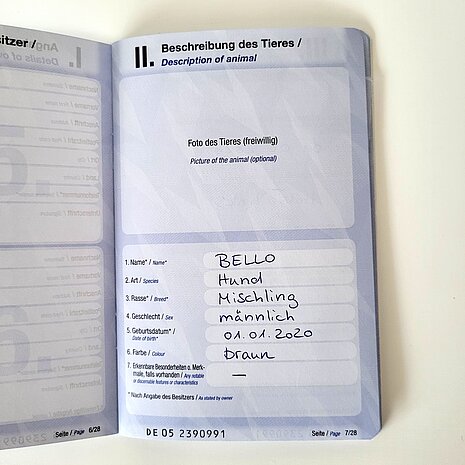 sitzer /
II. Beschreibung des Tieres /
Description of animal
Foto des Tieres (freiwillig)
Picture of the animal (optional)
1. Name* / Name* BELLO
2. Art / Species Hund
3. Rasse* / Breed* Mischling
4. Geschlecht / Sex männlich
5. Geburtsdatum* / 01.01.2020
Date of birth*
6. Farbe / Colour braun
7. Erkennbare Besonderheiten o. Merk-
male, falls vorhanden / Any notable —
or discernable features or characteristics
* Nach Angabe des Besitzers / As stated by owner
Seite / Page 6/28
DE 05 2390991
Seite / Page 7/28